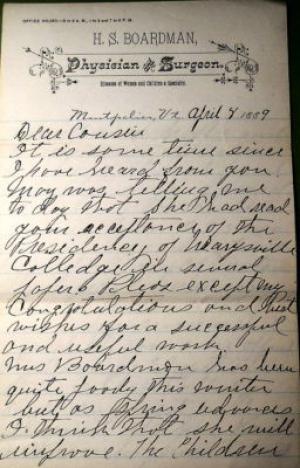 H. S. BOARDMAN,
Physician and Surgeon.
Diseases of Women and Children a Specialty.
Montpelier, Vt. April 8 1889
Dear Cousin
It is some time since
I have heard from you
May was telling me
to day that she had read
your acceptance of the
Presidency of Marysville
Colledge in several
papers Please except my
Congratulations and best
wishes for a successful
and useful work.
Mrs Boardman has been
quite poorly this winter
but as Spring advances
I think that she will
improve. The Children